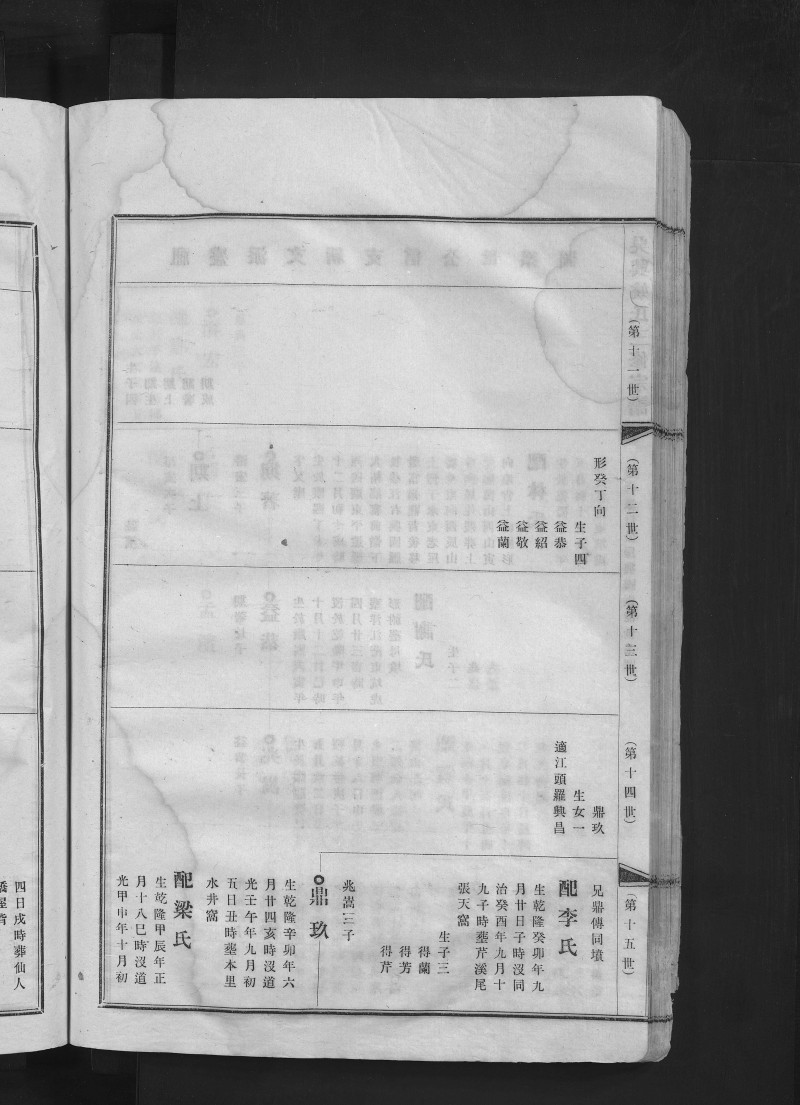 (第十一世)
(第十二世)
形癸丁向
生子四
益恭
益紹
益敬
益蘭
(第十三世)
(第十四世)
鼎玖
生女一
適江頭羅興昌
(第十五世)
兄鼎傳同墳
配李氏
生乾隆癸卯年九
月廿日子時沒同
治癸酉年九月十
九子時塟芹溪尾
張天窩
生子三
得蘭
得芳
得芹
兆嵩三子
鼎玖
生乾隆辛卯年六
月廿四亥時沒道
光壬午年九月初
五日丑時塟本里
水井窩
配梁氏
生乾隆甲辰年正
月十八巳時沒道
光甲申年十月初
四日戌時葬仙人